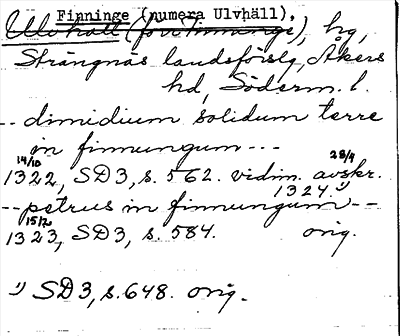 Finninge (numera Ulvhäll).
Ulvhäll (förr Finninge), hg,
Strängnäs landsförslg, Åkers
hd, Söderm. l.
-- dimidium solidum terre
in finnungum ---
14/10 28/9
1322, SD 3, s. 562. vidim. avskr.
1324.¹⁾
-- petrus in finnungum --
15/2
1323, SD 3, s. 584. orig.
¹⁾ SD 3, s. 648. orig.